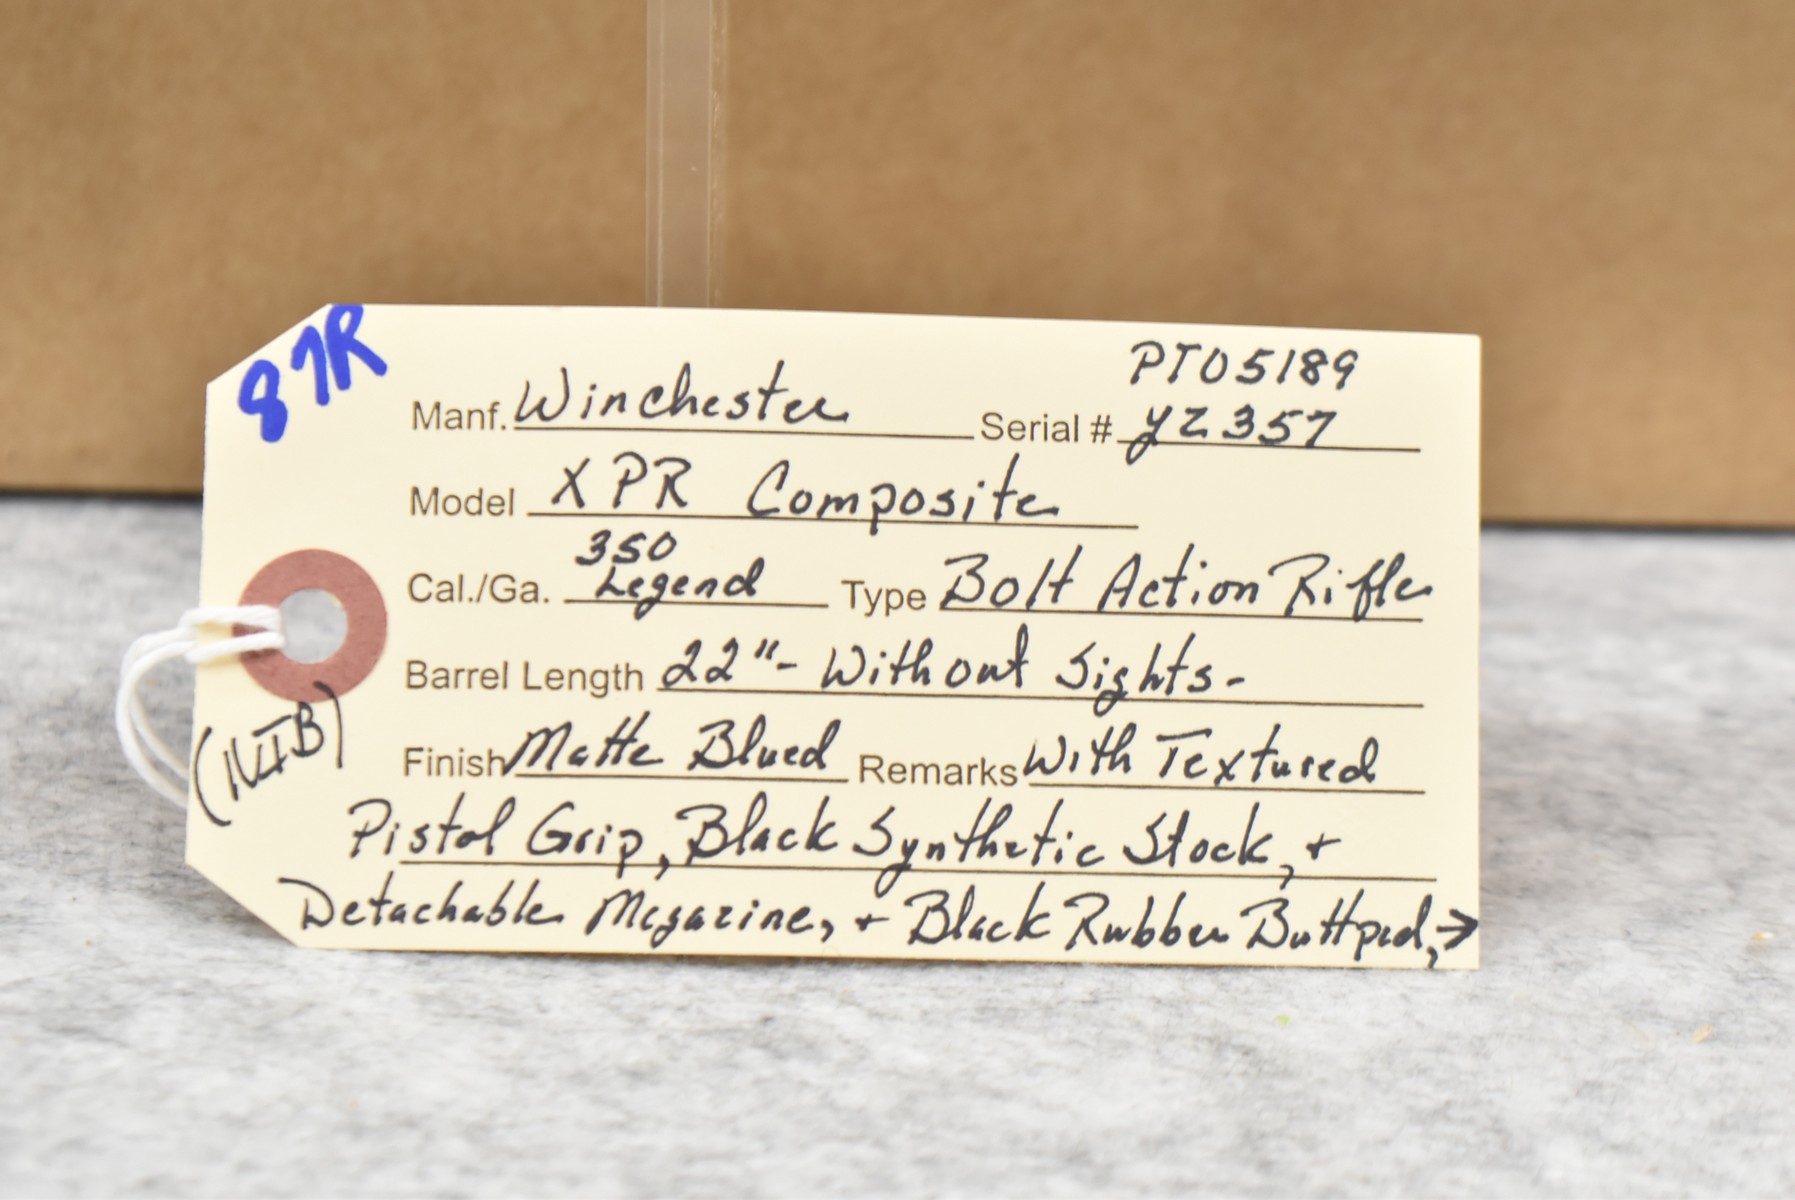 87R
PT05189
Manf. Winchester Serial # YZ357
Model XPR Composite
350
Cal./Ga. Legend Type Bolt Action Rifle
Barrel Length 22" - Without Sights -
Finish Matte Blued Remarks With Textured
(NIB)
Pistol Grip, Black Synthetic Stock, +
Detachable Magazine, + Black Rubber Buttpad, →